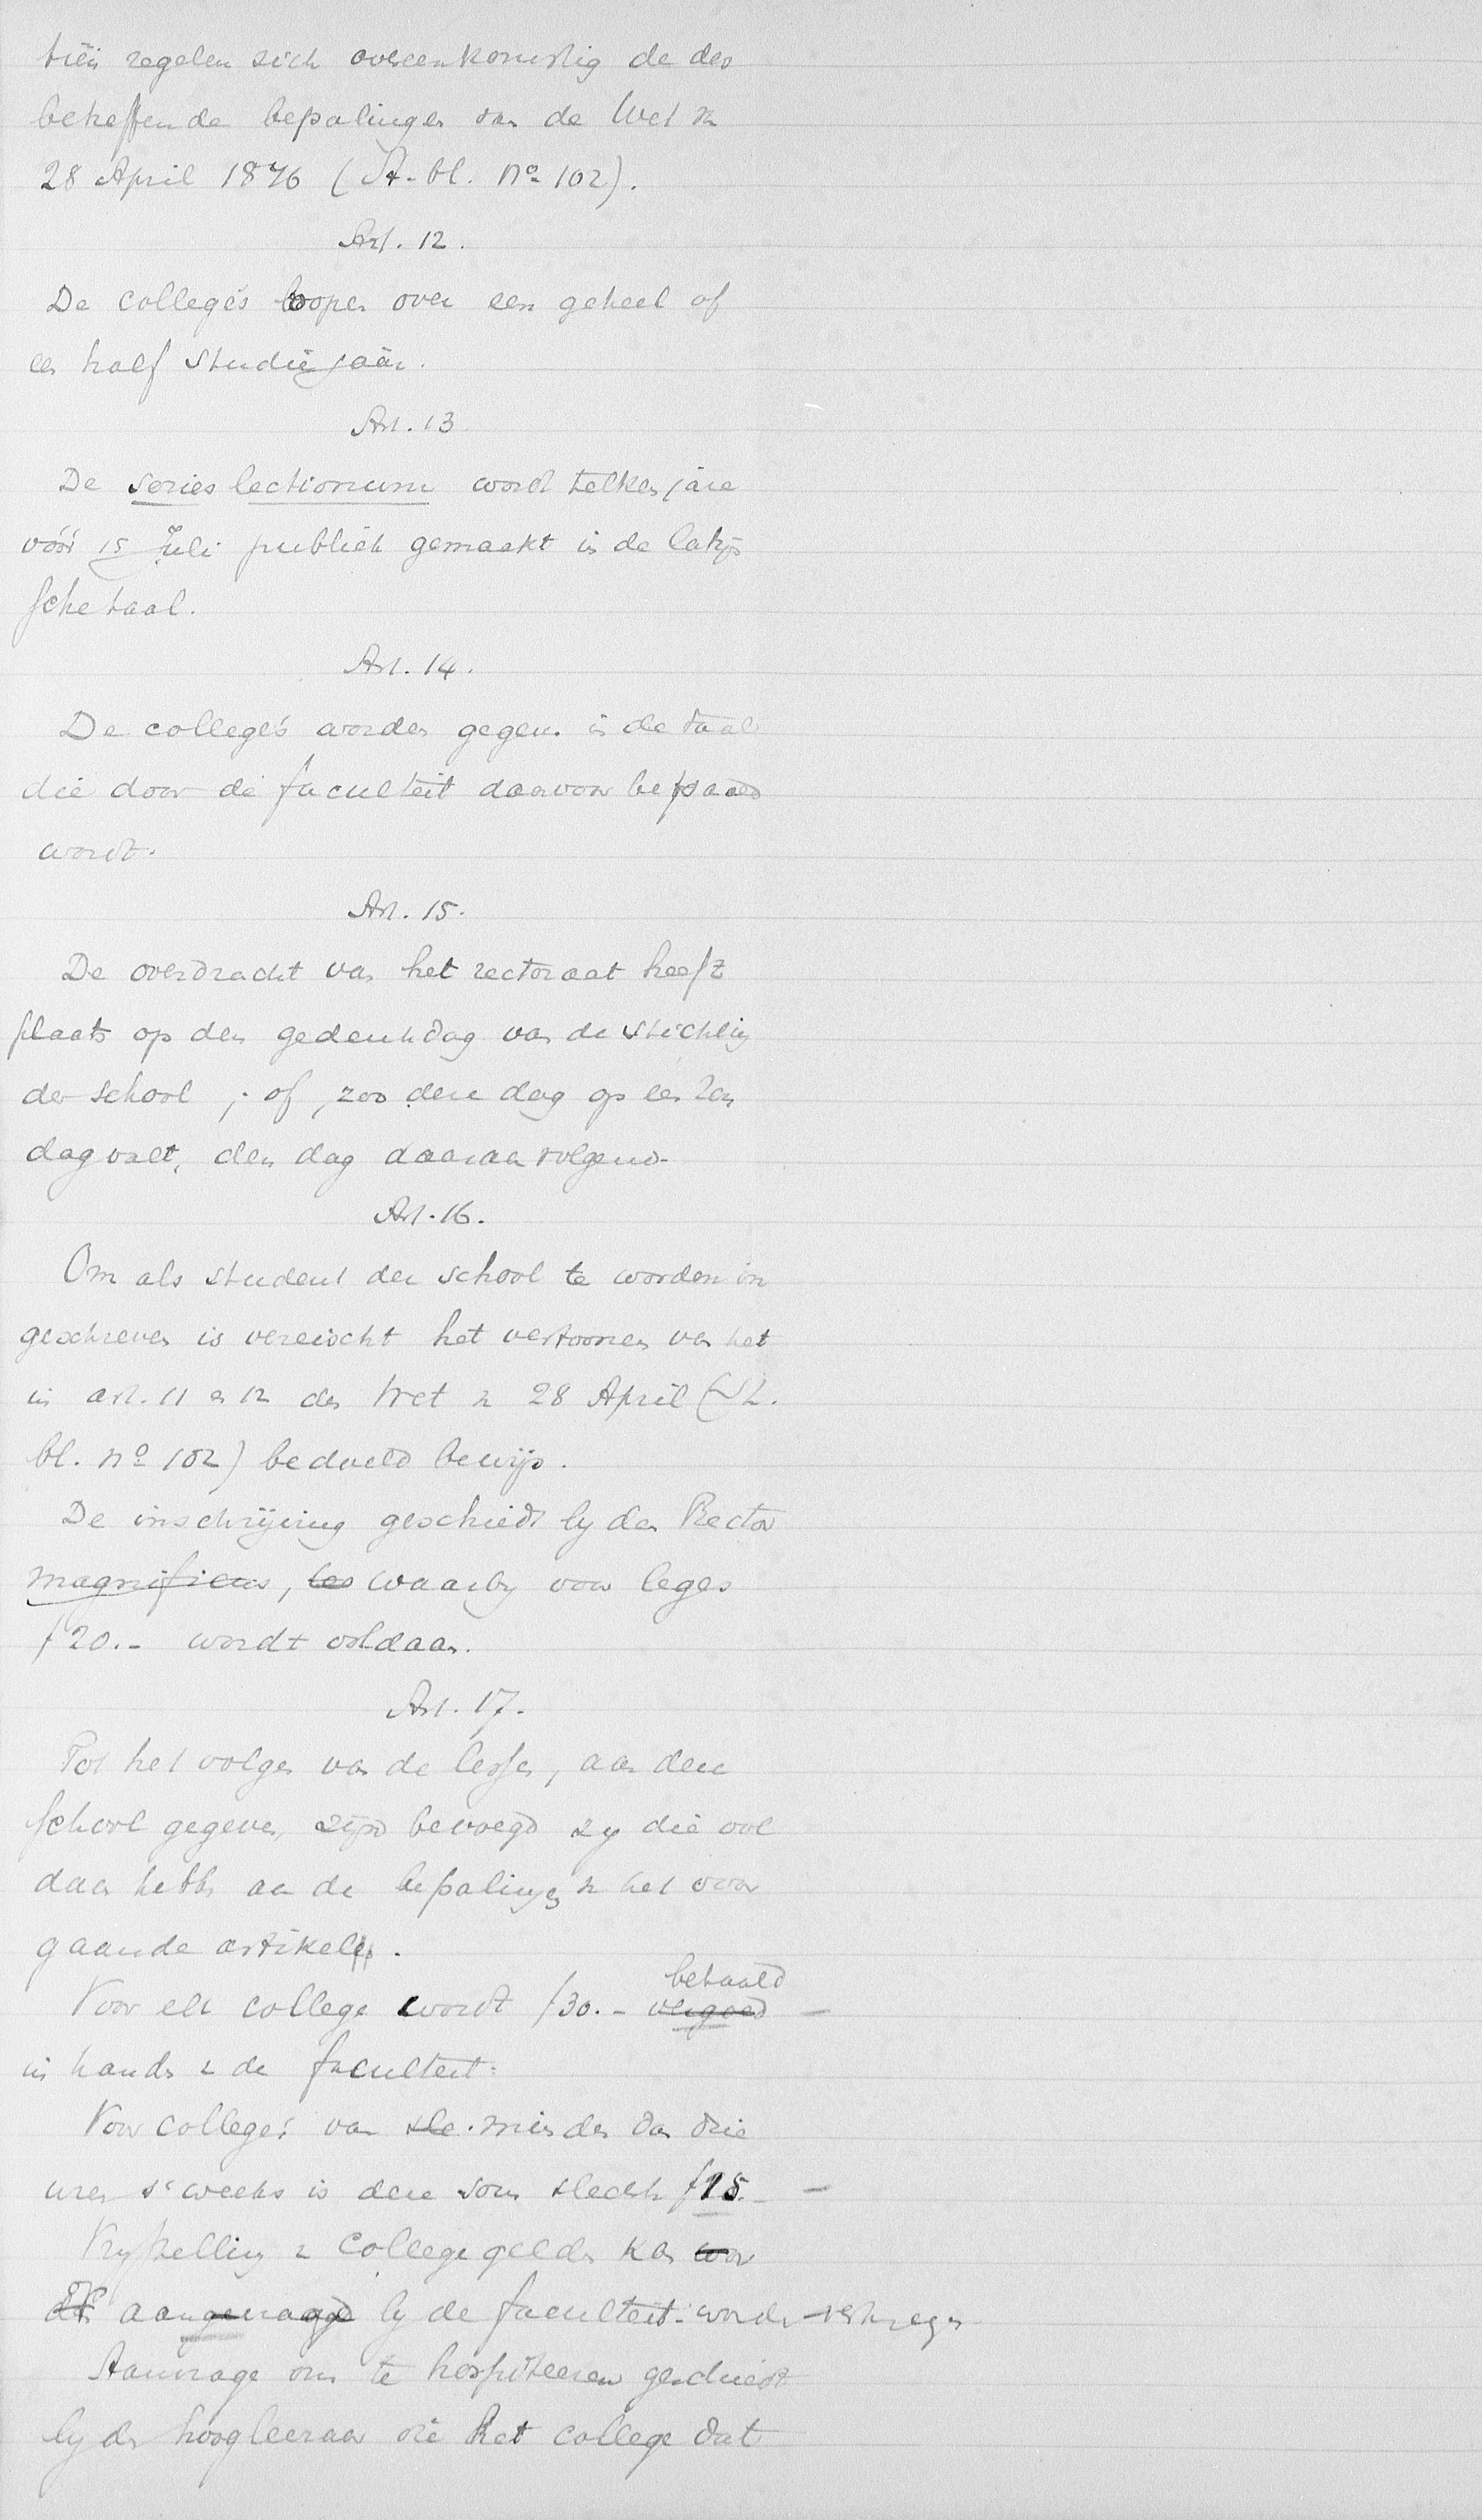 tiën regelen zich overeenkomstig de des
betreffende bepalingen van de Wet van
28 April 1876 (St.-bl. no 102).
Art. 12.
De college's loopen over een geheel of
een half studiejaar.
Art. 13
De series lectionum wordt telken jare
vóór 15 Juli publiek gemaakt in de latijn
sche taal.
Art. 14.
De college's worden gegeven in de taal
die door de faculteit daarvoor bepaald
wordt.
Art. 15.
De overdracht van het rectoraat heeft
plaats op den gedenkdag van de stichting
der school; of, zoo deze dag op een Zon
dag valt, den dag daaraanvolgend.
Art. 16.
Om als student der school te worden in
geschreven is vereischt het vertoonen van het
in art. 11 en 12 der Wet v 28 April (St.
bl. no 102) bedoeld bewijs.
De inschrijving geschiedt by den Rector
magnificus, waarby voor leges
f 20.- wordt voldaan.
Art. 17.
Tot het volgen van de lessen, aan deze
school gegeven, zijn bevoegd zy die vol
daan hebben aan de bepalingen v het voor
gaande artikel.
betaald
Voor elk college wordt f 30.- vergoed
in handen v de faculteit.
Voor college's van minder dan drie
uren 's weeks is deze som slechts f 15.-
Vrystelling v collegegelden kan wor
den aangevraagd by de faculteit. worden verkregen
Aanvrage om te hospiteeren geschiedt
by den hoogleeraar die het college dat